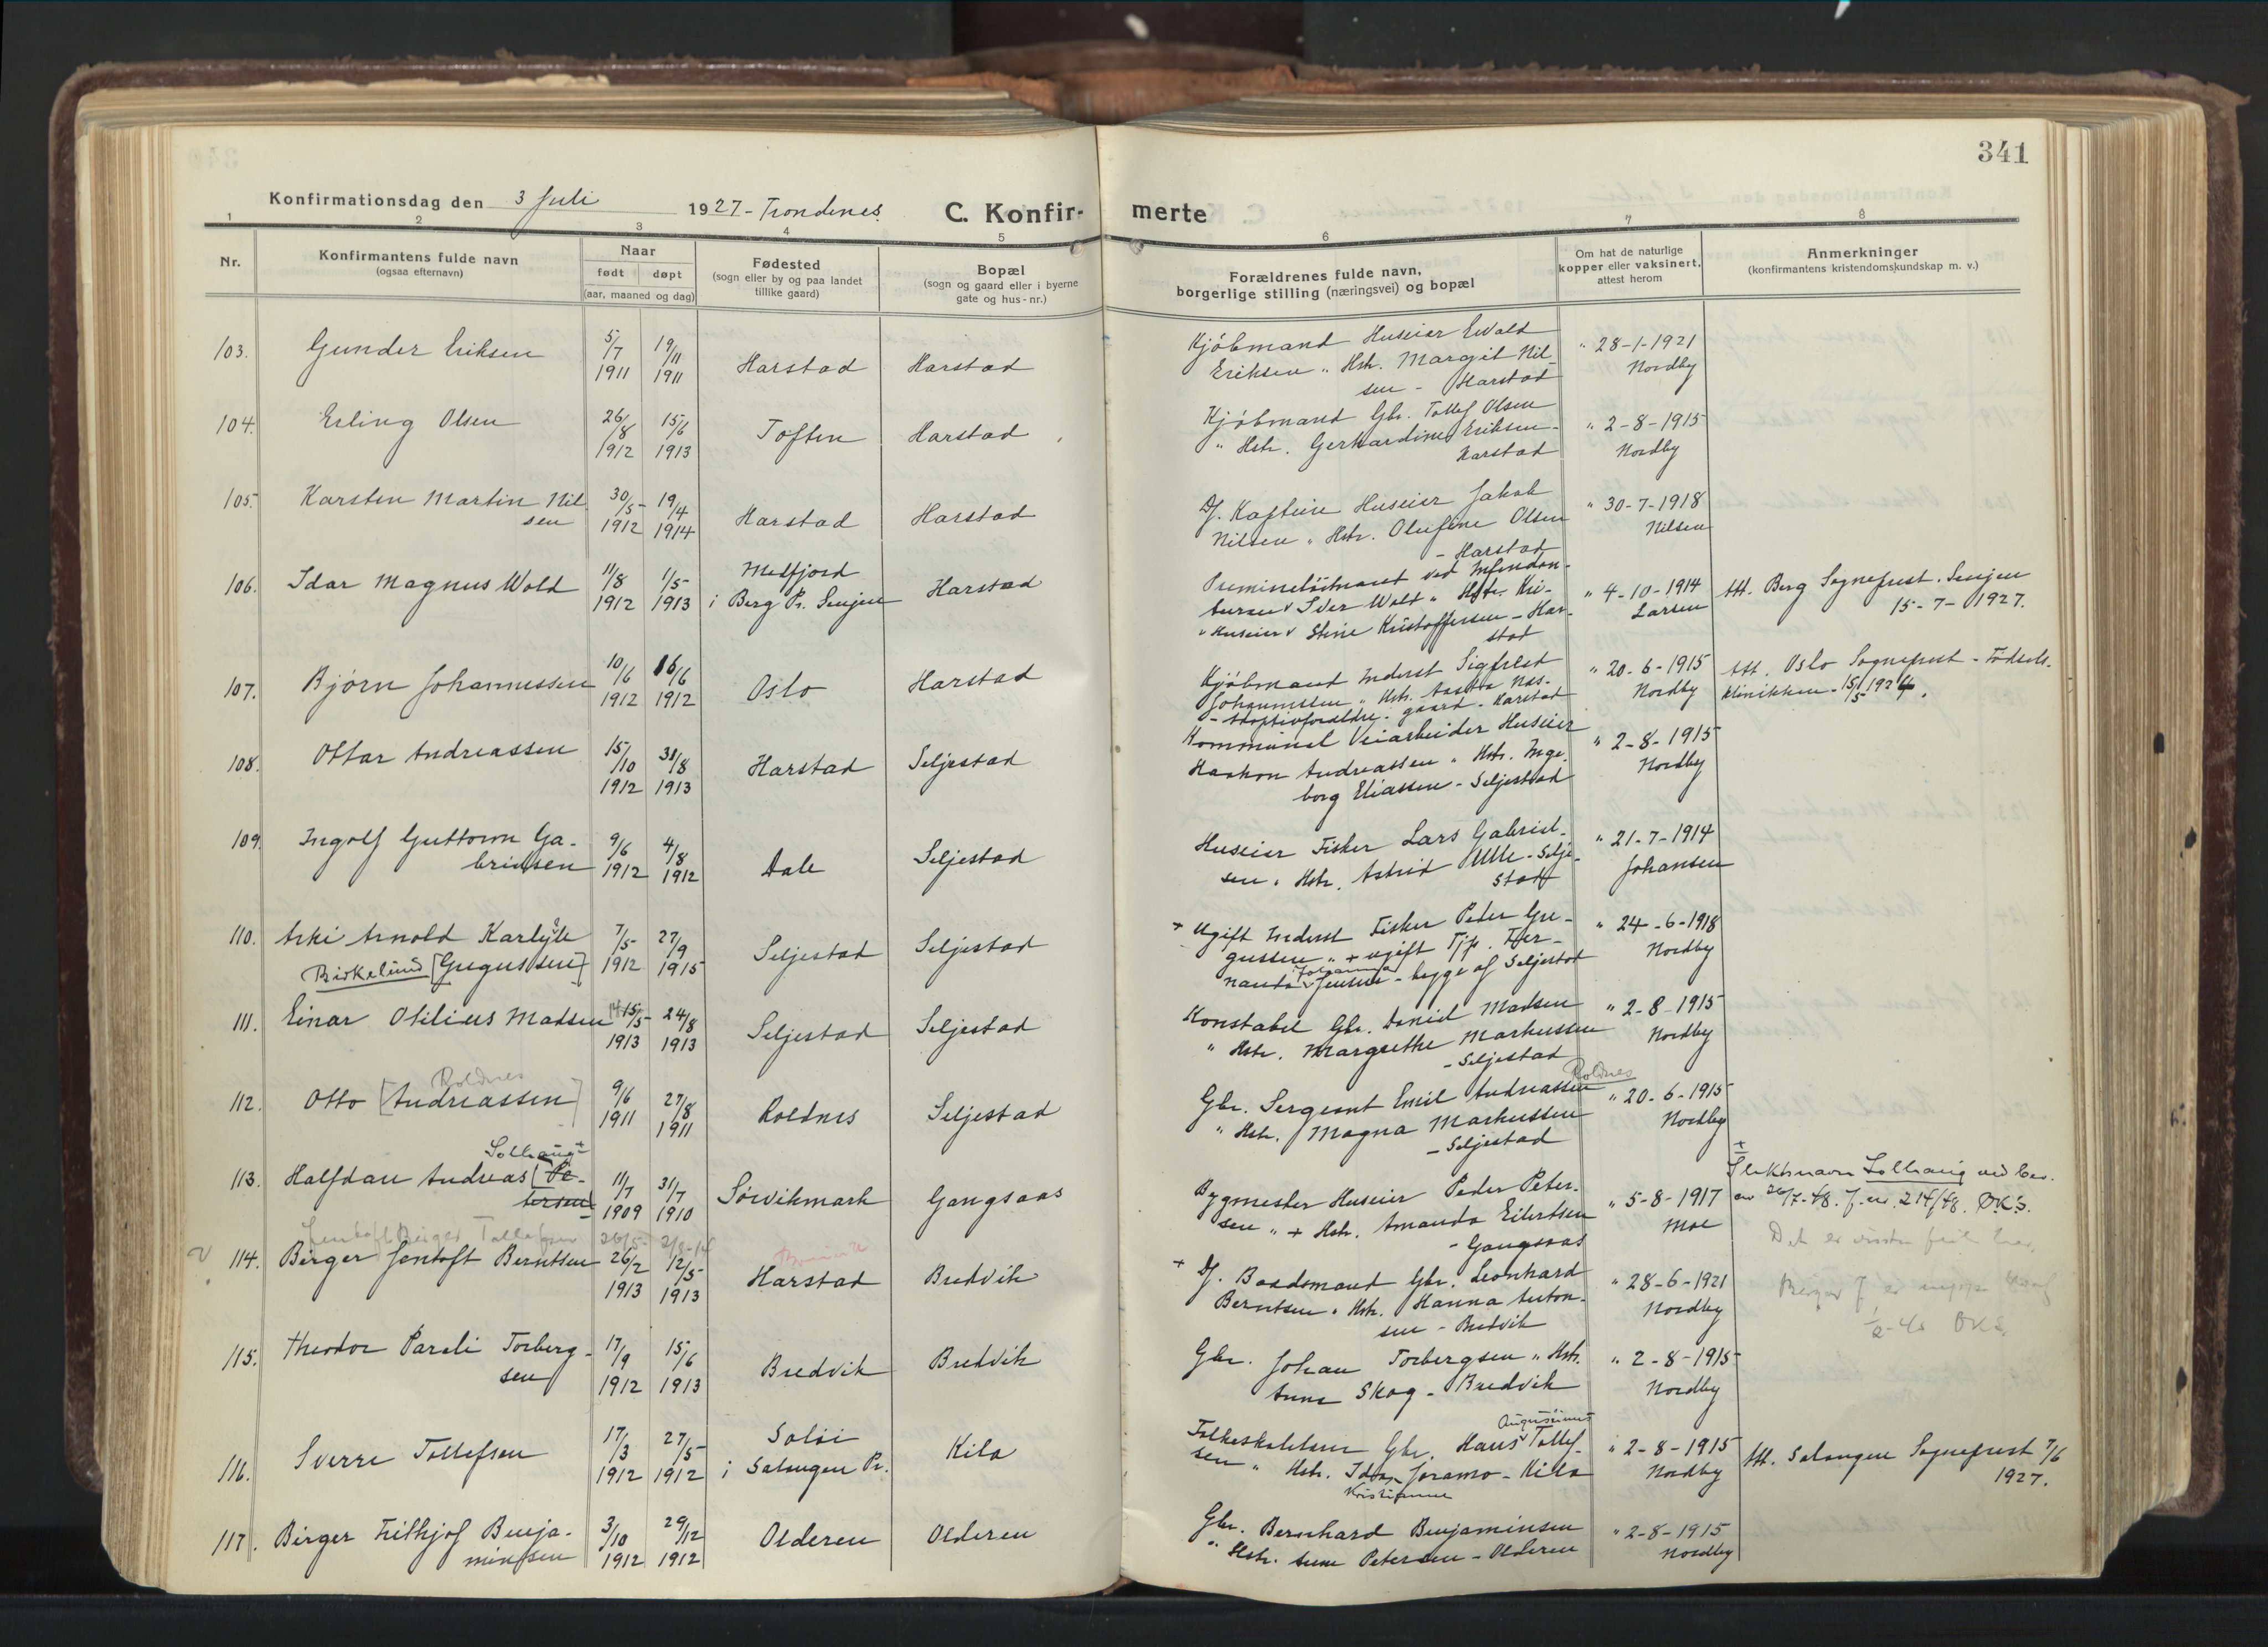 341
Konfirmationsdag den 3 Juli 1927 - Trondenes. C. Konfir- merte
1 2 3 4 5 6 7 8
Nr.
Konfirmantens fulde navn
(ogsaa efternavn)
Naar
født døpt
(aar, maaned og dag)
Fødested
(sogn eller by og paa landet
tillike gaard)
Bopæl
(sogn og gaard eller i byerne
gate og hus-nr.)
Forældrenes fulde navn,
borgerlige stilling (næringsvei) og bopæl
Om hat de naturlige
kopper eller vaksinert,
attest herom
Anmerkninger
(konfirmantens kristendomskundskap m. v.)
103. Gunder Eriksen
5/7 1911
19/11 1911
Harstad
Harstad
Kjøbmand Huseier Ewald
Eriksen " Hstr. Margit Nil-
sen - Harstad
" 28-1-1921
Nordby
104. Erling Olsen
26/8 1912
15/6 1913
Toften
Harstad
Kjøbmand Gbr. Tollef Olsen
" Hstr. Gerhardine Eriksen -
Harstad
" 2-8-1915
Nordby
105. Karsten Martin Nil-
sen
30/5 1912
19/4 1914
Harstad
Harstad
Df. Kaptein Huseier Jakob
Nilsen " Hstr. Olufine Olsen
- Harstad
" 30-7-1918
Nilsen
106. Idar Magnus Wold
11/8 1912
1/5 1913
Medfjord
i Berg Pr. Senjen
Harstad
Premierløitnant ved Intendan-
turen Iver Wold " Hstr. Kri-
" Huseier " Stine Kristoffersen - Har-
stad
" 4-10-1914
Larsen
Att. Berg Sogneprest. Senjen
15-7-1927.
107. Bjørn Johannessen
10/6 1912
16/6 1912
Oslo
Harstad
Kjøbmand Inderst Sigfrid
Johannessen " Hstr. Aasta Næs-
- Adoptivforældre. gaard - Harstad
" 20-6-1915
Nordby
Att. Oslo Sogneprest - Fødsels-
klinikken - 15/5 1924.
108. Ottar Andreassen
15/10 1912
31/8 1913
Harstad
Seljestad
Kommunal Veiarbeider Huseier
Haakon Andreassen " Hstr. Inge-
borg Eliassen - Seljestad
" 2-8-1915
Nordby
109. Ingolf Guttorm Ga-
brielsen
9/6 1912
4/8 1912
Dale
Seljestad
Huseier Fisker Lars Gabriel-
sen " Hstr. Astrid Ulle - Selje-
stad
" 21-7-1914
Johansen
110. Aski Arnold Karlyle
Birkelund [Gregussen]
7/5 1912
27/9 1915
Seljestad
Seljestad
+ Ugift Inderst Fisker Peder Gre-
gussen " + ugift Tjp. Fer-
nanda Johanna Jensen - begge af Seljestad
" 24-6-1918
Nordby
111. Einar Otilius Madsen
14 15/5 1913
24/8 1913
Seljestad
Seljestad
Konstabel Gbr. Daniel Madsen
" Hstr. Margrethe Markussen
- Seljestad
" 2-8-1915
Nordby
112. Otto [Andreassen] Roldnes
9/6 1911
27/8 1911
Roldnes
Seljestad
Gbr. Sergeant Emil Andreassen Roldnes
" Hstr. Magna Markussen
- Seljestad
" 20-6-1915
Nordby
Solhaug +
113. Halfdan Andreas [Pe-
tersen]
11/7 1909
31/7 1910
Sørvikmark
Gangsaas
Bygmester Huseier Peder Peter-
sen " + Hstr. Amanda Eilertsen
- Gangsaas
" 5-8-1917
Moe
+
Slektsnavn Solhaug ved bev.
av 26/7-48. J.nr. 214/48. ØKS.
Jentoft Birger Tollefsen
114. Birger Jentoft Berntsen
26/2 1913
12/5 1913
Harstad
Bredvik
+ Df. Baadsmand Gbr. Leonhard
Berntsen " Hstr. Hanna Anton-
sen - Bredvik
" 28-6-1921
Nordby
Det er feil her.
ØKS.
115. Theodor Pareli Torberg-
sen
17/9 1912
15/6 1913
Bredvik
Bredvik
Gbr. Johan Torbergsen " Hstr.
Anna Skog - Bredvik
" 2-8-1915
Nordby
116. Sverre Tollefsen
17/3 1912
27/5 1912
Soløi
i Salangen Pr.
Kila
Augustinus
Folkeskolelærer Gbr. Hans Tollef-
sen " Hstr. Ida Joramo - Kila
Kristianne
" 2-8-1915
Nordby
Att. Salangen Sogneprest 7/6
1927.
117. Birger Frithjof Benja-
minsen
3/10 1912
29/12 1912
Olderen
Olderen
Gbr. Bernhard Benjaminsen
" Hstr. Anne Petersen - Olderen
" 2-8-1915
Nordby